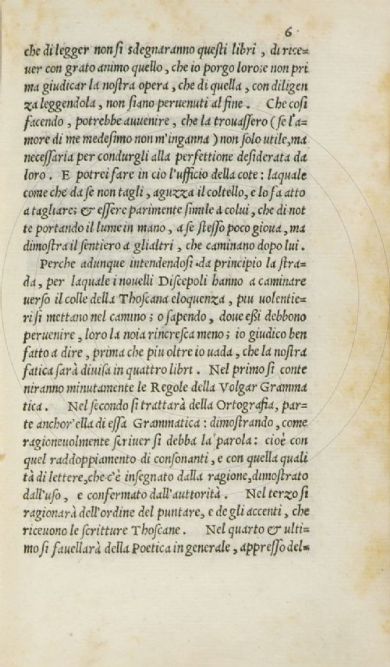 6
che di legger non si sdegnaranno questi libri, di rice=
uer con grato animo quello, che io porgo loro:se non pri
ma giudicar la nostra opera, che di quella, con diligen
za leggendola, non siano peruenuti al fine. Che cosi
facendo, potrebbe auuenire, che la trouassero (se l'a=
more di me medesimo non m'inganna) non solo utile,ma
necessaria per condurgli alla perfettione desiderata da
loro. E potrei fare in cio l'ufficio della cote: laquale
come che da se non tagli, aguzza il coltello, e lo fa atto
a tagliare: & essere parimente simile a colui, che di not
te portando il lume in mano, a se stesso poco gioua, ma
dimostra il sentiero a glialtri, che caminano dopo lui.
Perche adunque intendendosi da principio la stra=
da, per laquale i nouelli Discepoli hanno a caminare
uerso il colle della Thoscana eloquenza, piu uolentie=
ri si mettano nel camino; o sapendo, doue essi debbono
peruenire, loro la noia rincresca meno; io giudico ben
fatto a dire, prima che piu oltre io uada, che la nostra
fatica sarà diuisa in quattro libri. Nel primo si conte
niranno minutamente le Regole della Volgar Gramma
tica. Nel secondo si trattarà della Ortografia, par=
te anchor'ella di essa Grammatica: dimostrando, come
ragioneuolmente scriuer si debba la parola: cioè con
quel raddoppiamento di consonanti, e con quella quali
tà di lettere,che c'è insegnato dalla ragione,dimostrato
dall'uso, e confermato dall'auttorità. Nel terzo si
ragionarà dell'ordine del puntare, e de gli accenti, che
riceuono le scritture Thoscane. Nel quarto & ulti=
mo si fauellarà della Poetica in generale, appresso del=